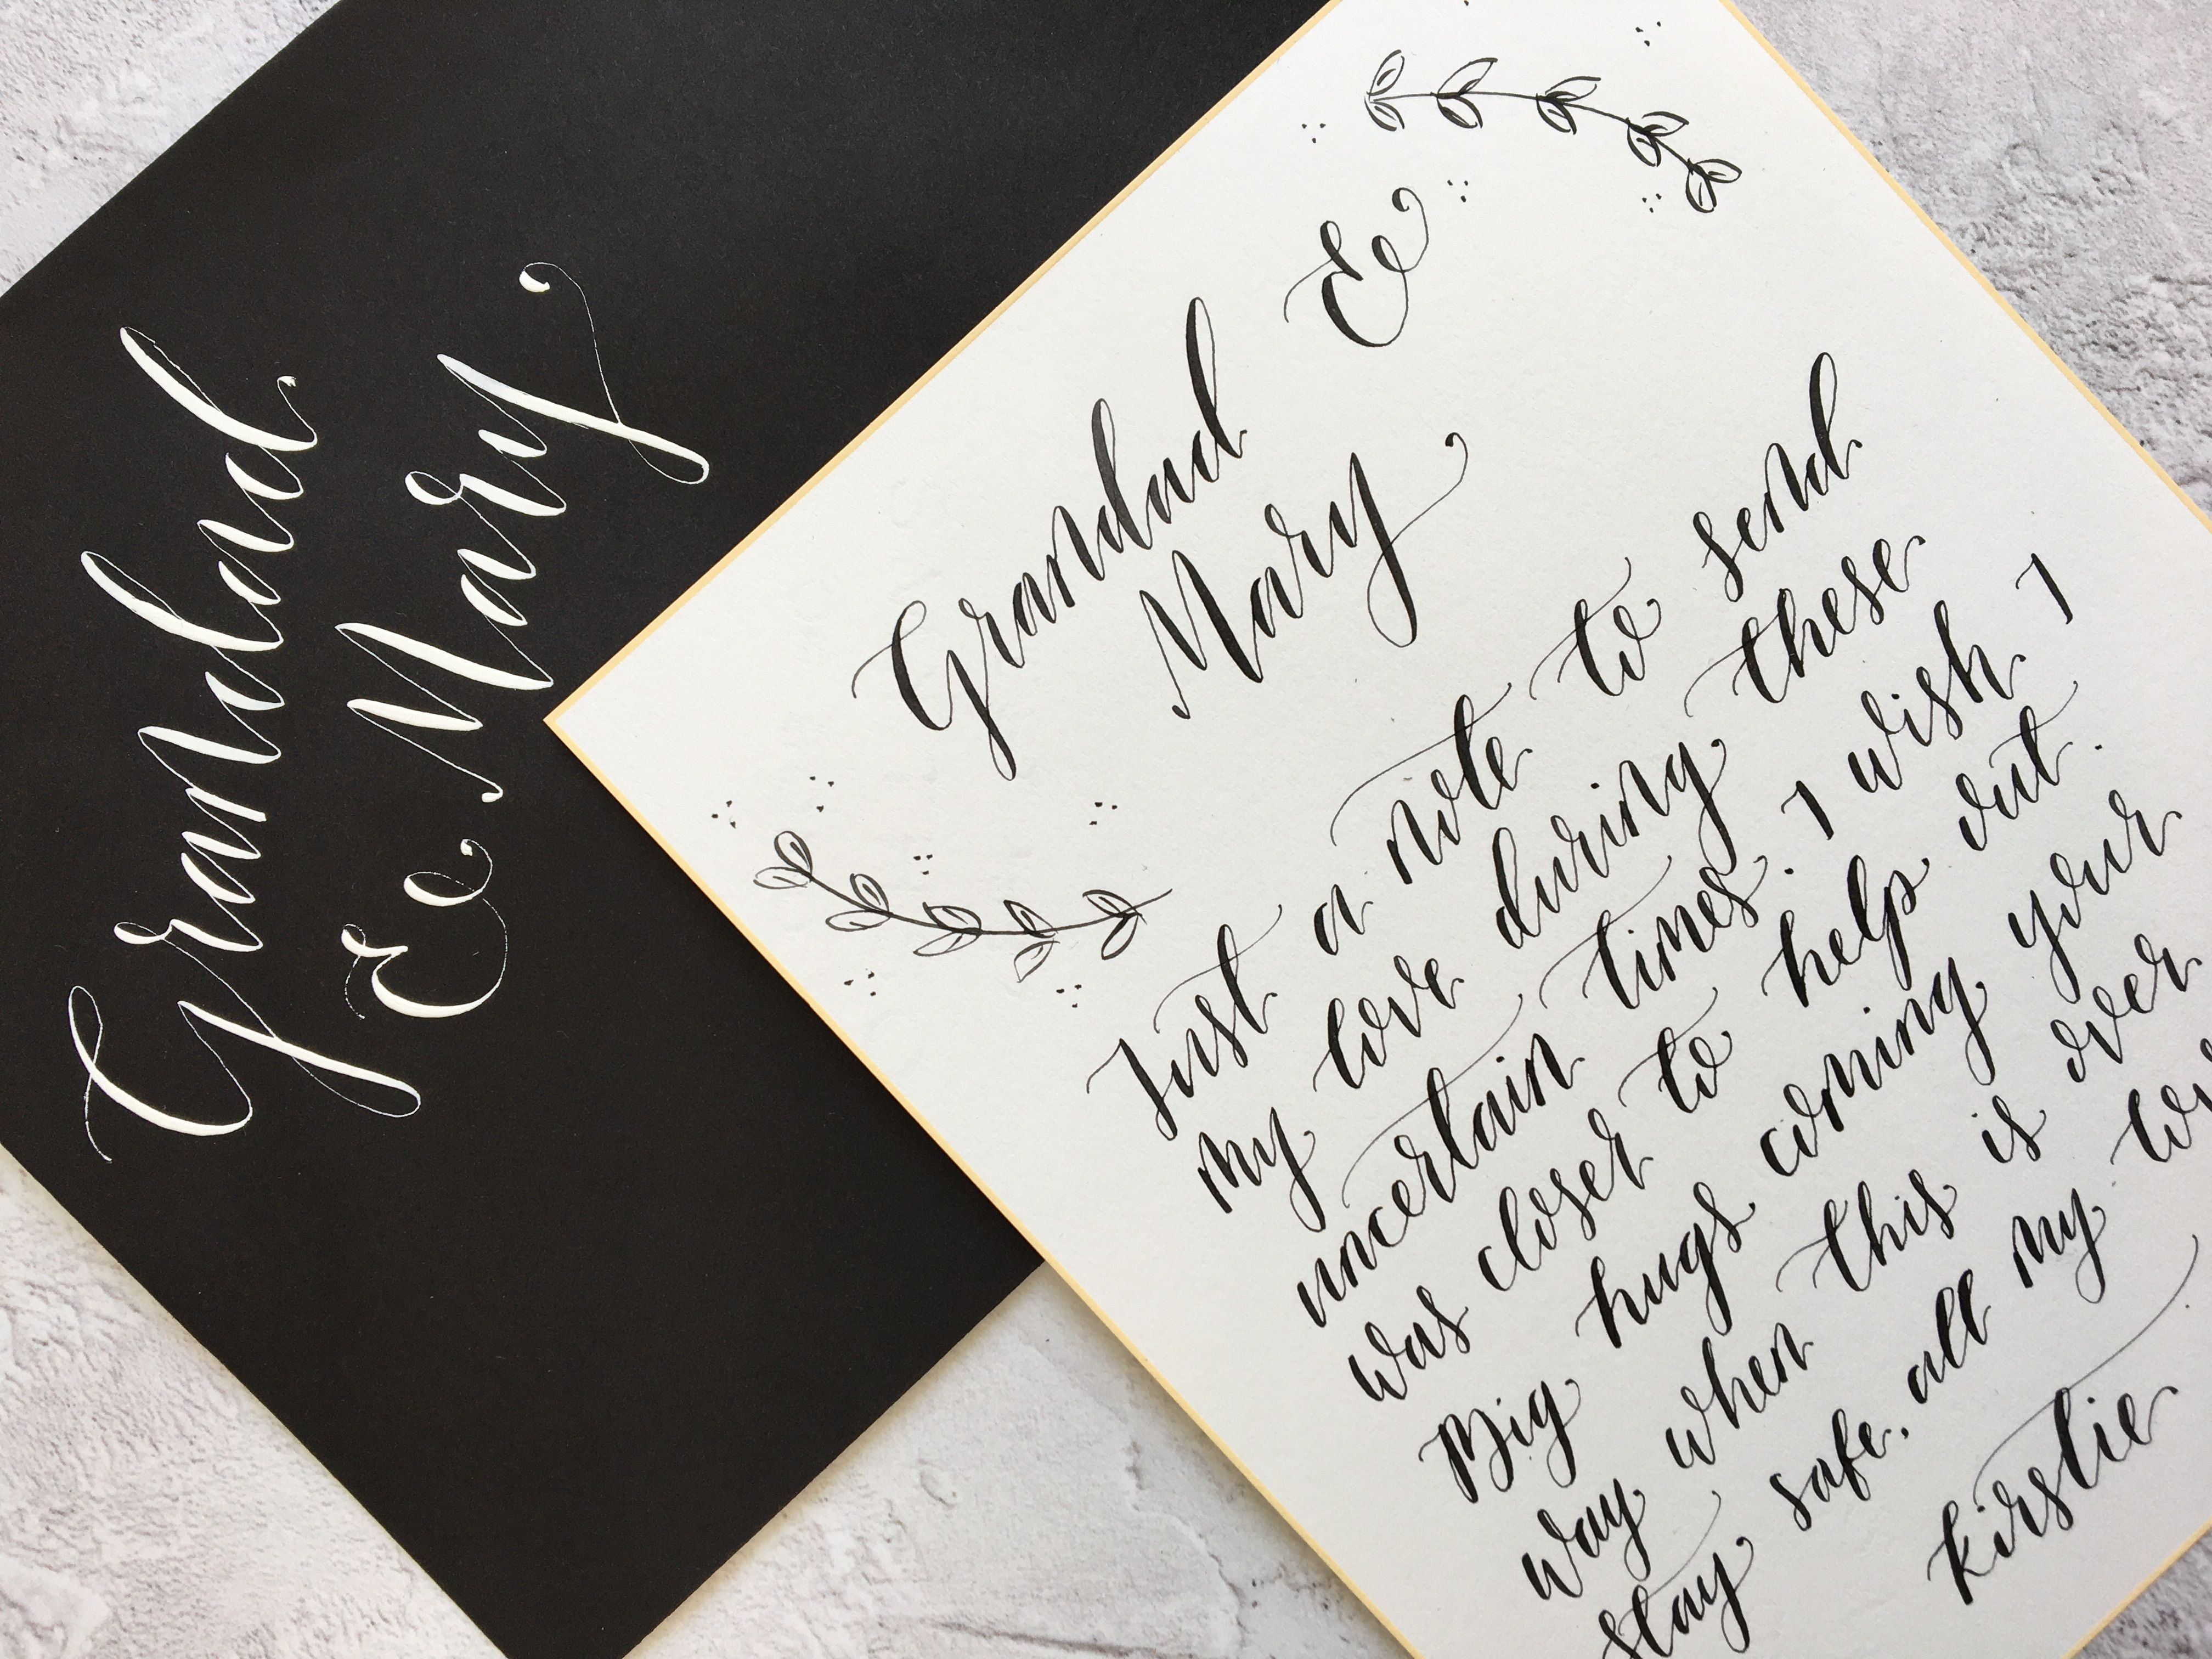 Grandad
& Mary
Grandad &
Mary
Just a note to send
my love during these
uncertain times. I wish I
was closer to help out.
Big hugs coming your
way when this is over
stay safe. all my
kirstie